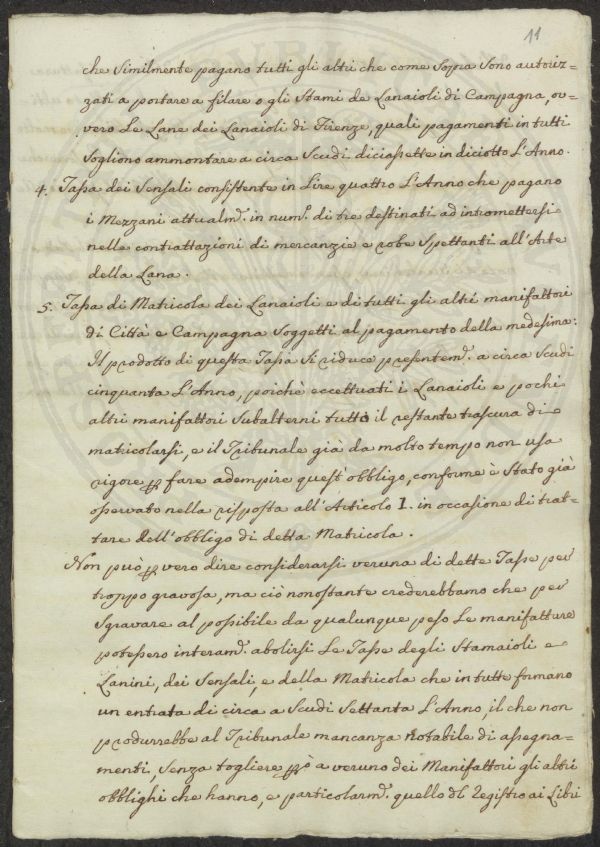 11
che Similmente pagano tutti gli altri che come Sopra Sono autoriz=
zati a portare a filare o gli Stami de Lanaioli di Campagna, ov=
vero Le Lane dei Lanaioli di Firenze, quali pagamenti in tutti
Sogliono ammontare a circa Scudi diciassette in diciotto L'Anno.
4. Tassa dei Sensali consistente in Lire quattro L'Anno che pagano
i Mezzani attualmte. in numo. di tre destinati ad intromettersi
nelle contrattazioni di mercanzie e robe Spettanti all'Arte
della Lana.
5. Tassa di Matricola dei Lanaioli e di tutti gli altri manifattori
di Città e Campagna Soggetti al pagamento della medesima:
Il prodotto di questa Tassa Si riduce presentemte. a circa Scudi
cinquanta L'Anno, poichè eccettuati i Lanaioli e pochi
altri manifattori Subalterni tutto il restante trascura di
matricolarsi, e il Tribunale già da molto tempo non usa
rigore p fare adempire quest'obbligo, conforme è Stato già
osservato nella risposta all'Articolo 1. in occasione di trat=
tare dell'obbligo di detta Matricola.
Non può p vero dire considerarsi veruna di dette Tasse per
troppo gravosa, ma ciò nonostante crederebbamo che per
Sgravare al possibile da qualunque peso Le manifatture
potessero interamte. abolirsi Le Tasse degli Stamaioli e
Lanini, dei Sensali, e della Matricola che in tutte formano
un entrata di circa a Scudi Settanta L'Anno, il che non
produrrebbe al Tribunale mancanza notabile di assegna=
menti, Senza togliere pò a veruno dei Manifattori gli altri
obblighi che hanno, e particolarmte. quello dl Registro ai Libri